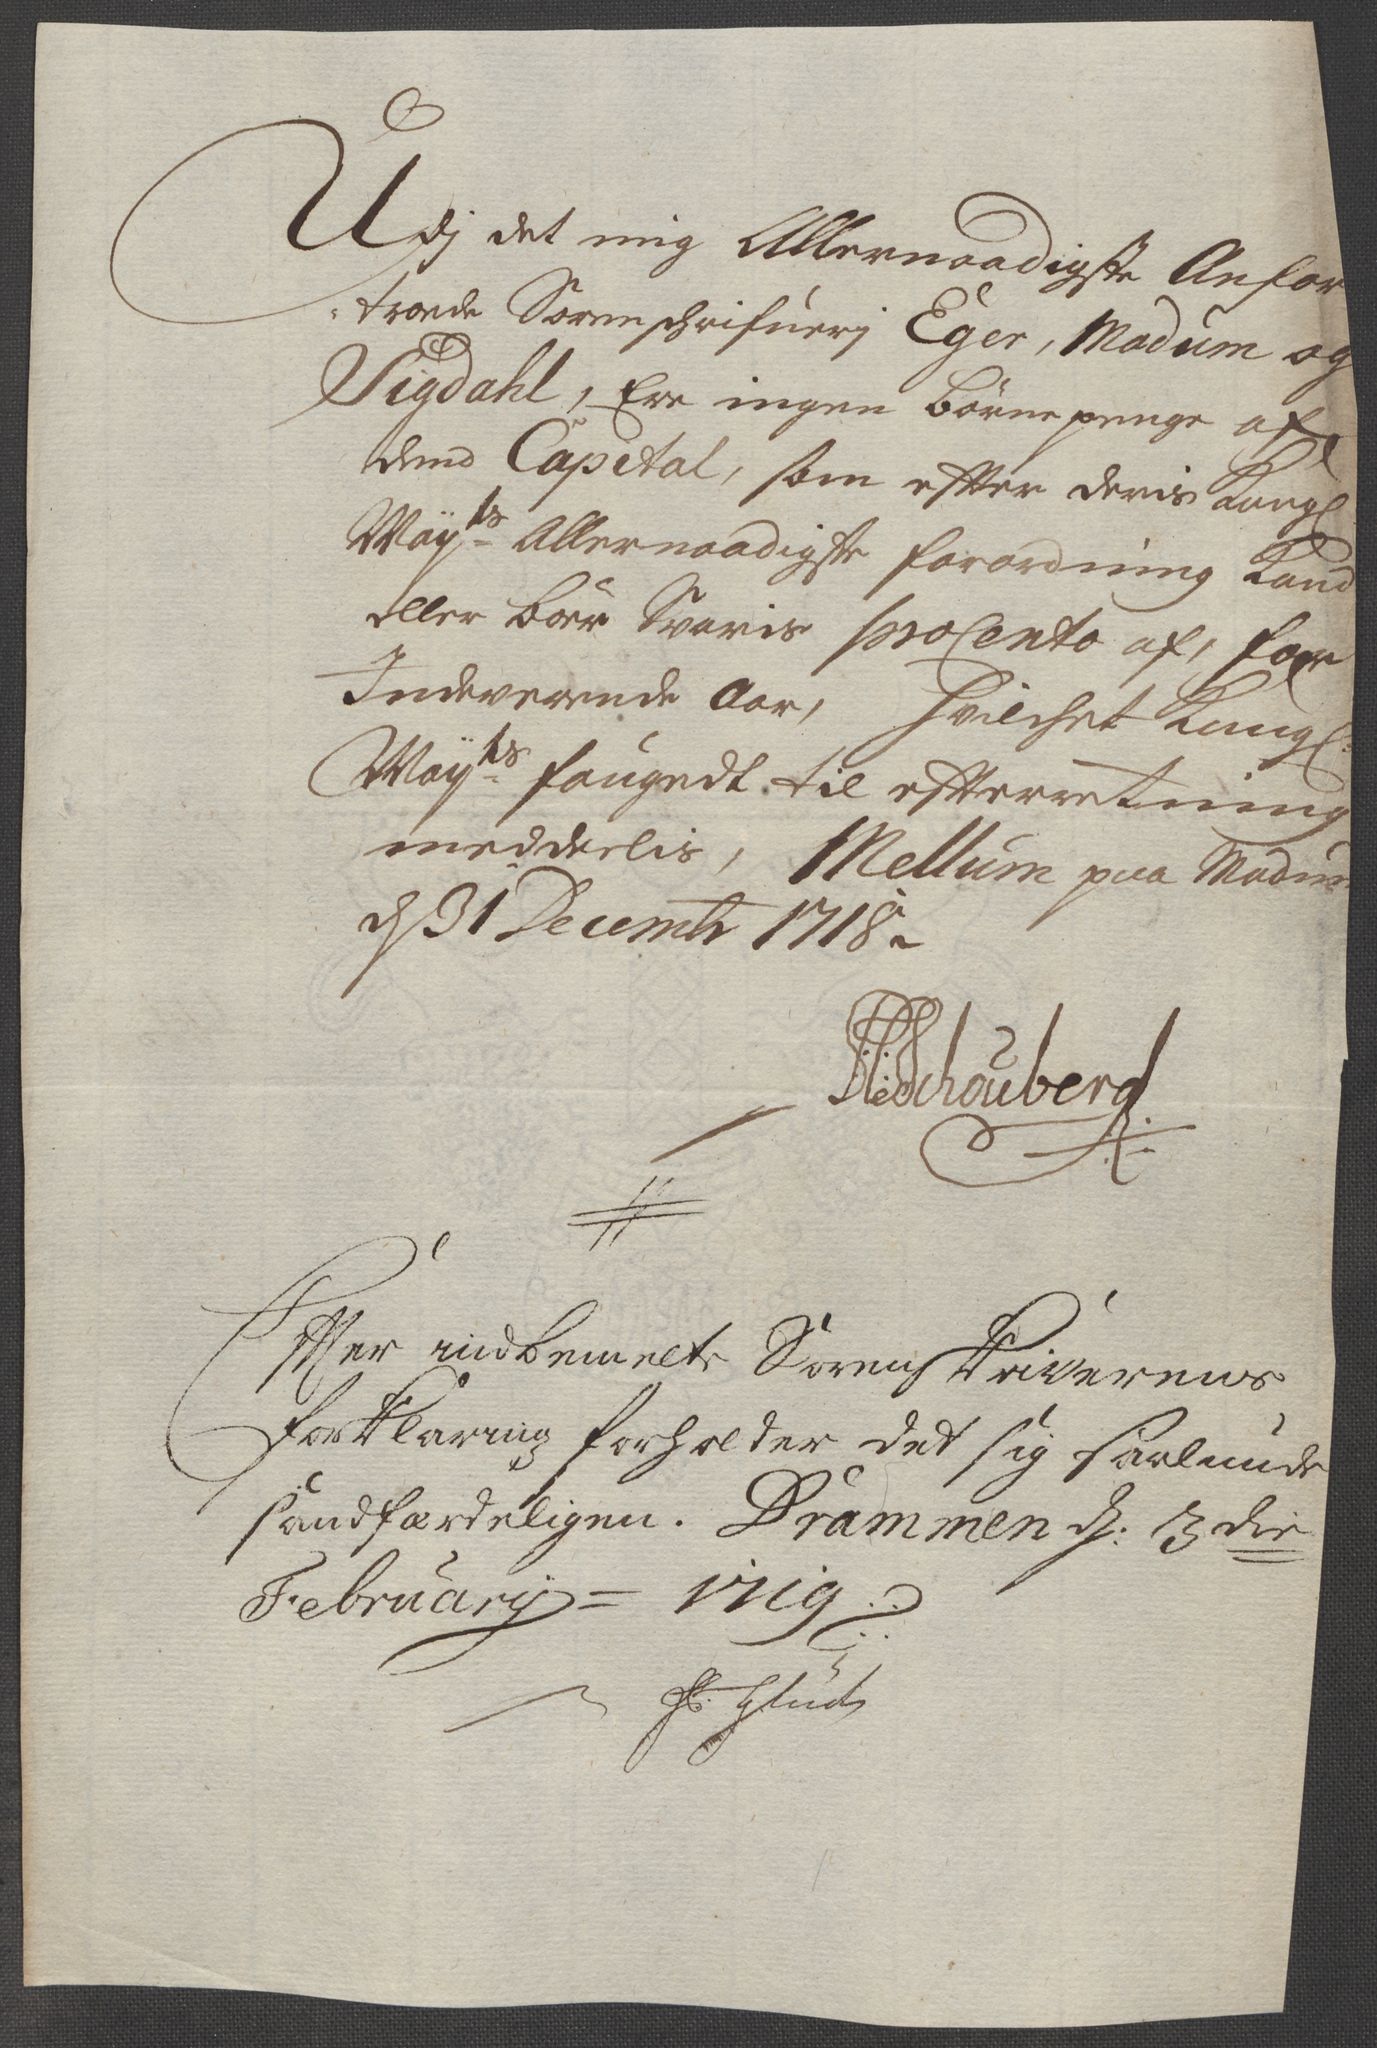 Udj det mig Allernaadigste Anfor
troede Sorenschrifuerj Eger, Modum og
Sigdahl, Ere ingen Börnepenge af
dend Capital, som efter deris Kongl
Mayts Allernaadigste forordning Kand
eller bör Svaris procento af, for
Indeverende Aar, Hvilchet Kongl
Mayts fougedt til efterretning
meddeelis, Mellum paa Modum
d 31 Decembr 1718
Schouberg
Efter indbemelte Sorenskriverens
forklaring forholder det sig saaleedes
sandfærdeligen. Drammen d: 3 die
February = 1719